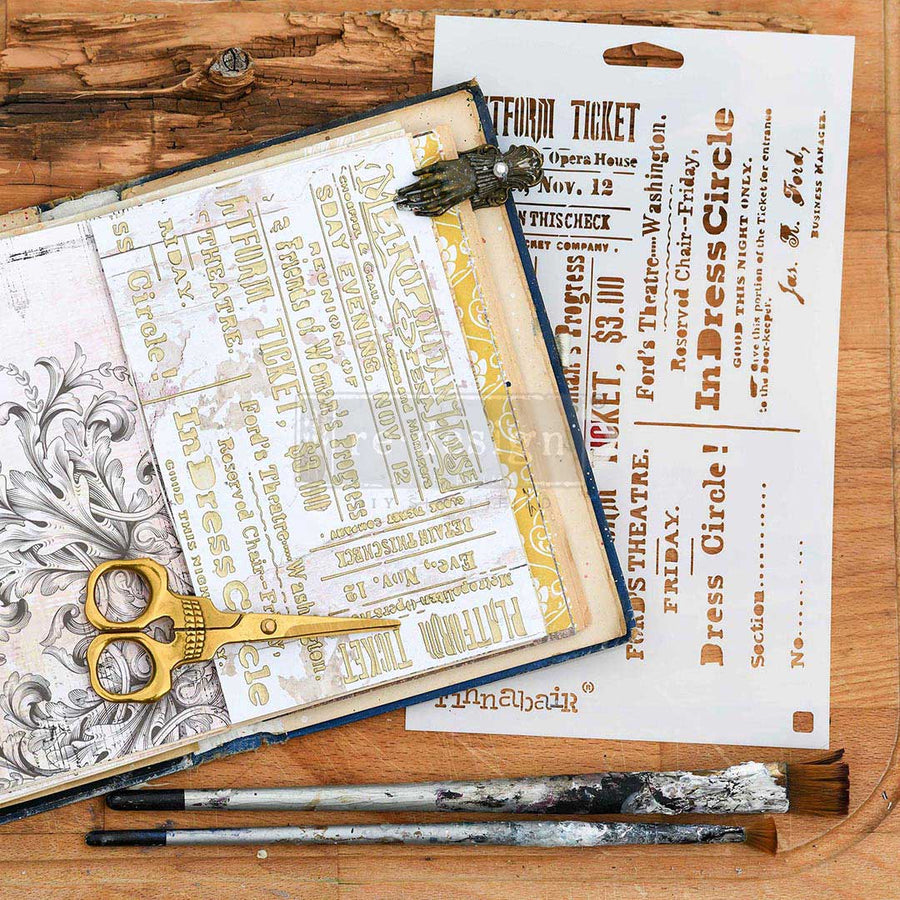 TFORM TICKET
Opera House
Nov. 12
N THIS CHECK
CKET COMPANY
Progress
CKET, $3.00
Ford's Theatre Washington.
Reserved Chair-Friday,
In Dress Circle
GOOD THIS NIGHT ONLY.
Give this portion of the Ticket for entrance
to the Door-keeper.
Jas. R. Ford,
BUSINESS MANAGER.
FORD'S THEATRE.
FRIDAY.
Dress Circle!
Section
No
Finnabair®
MERCANTILE
SDAY EVENING, NOV. 12
REUNION OF
Friends of Woman's Progress
TFORM TICKET $3.00
THEATRE.
RIDAY.
ss Circle!
Ford's Theatre Wash
Reserved Chair-F
In Dress Circle
GOOD THIS NIGH
GLOBE TICKET COMPANY
RETAIN THIS CHECK
Eve., Nov. 12
Metropolitan Opera
PLATFORM TICKET
re·design